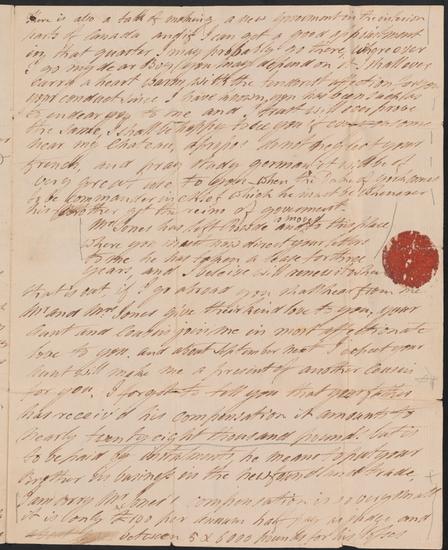 There is also a talk of making a new Government in the interior
parts of Canada and if I can get a good appointment
in that quarter I may probably go there, where ever
I go my dear Boy you may depend on it I shall ever
carry a heart warm with the tenderest affection for you
your conduct since I have known you has been such as
to endear you to me and I trust will ever prove
the same, I shall be happy to see you
near my Chateau, apropos do not neglect your
french, and pray study german it will be of
very great use to you when the
to be Commander in chief which he must be whenever
his brother gets the reins of government
Mr Jones has left and moved to this place
where you must now direct your letters
to me he has taken a lease for three
years, and I believe will renew it when
that is out, if I go abroad you shall hear from me
Mr and Mrs Jones give their kind love to you, your
Aunt and cousins join me in most affectionate
love to you, and about September next I expect your
Aunt will make me a present of another Cousin
for you. I forgot to tell you that your father
has receiv'd his compensation it amounts to
nearly twenty eight thousand pounds but is
to be paid by instalments, he means to put your
Brother in business in the newfoundland trade,
I am sorry Mr Jones's compensation is so very small
it is only £ 190 per annum half pay in
between 5 & 6000 pounds for his losses